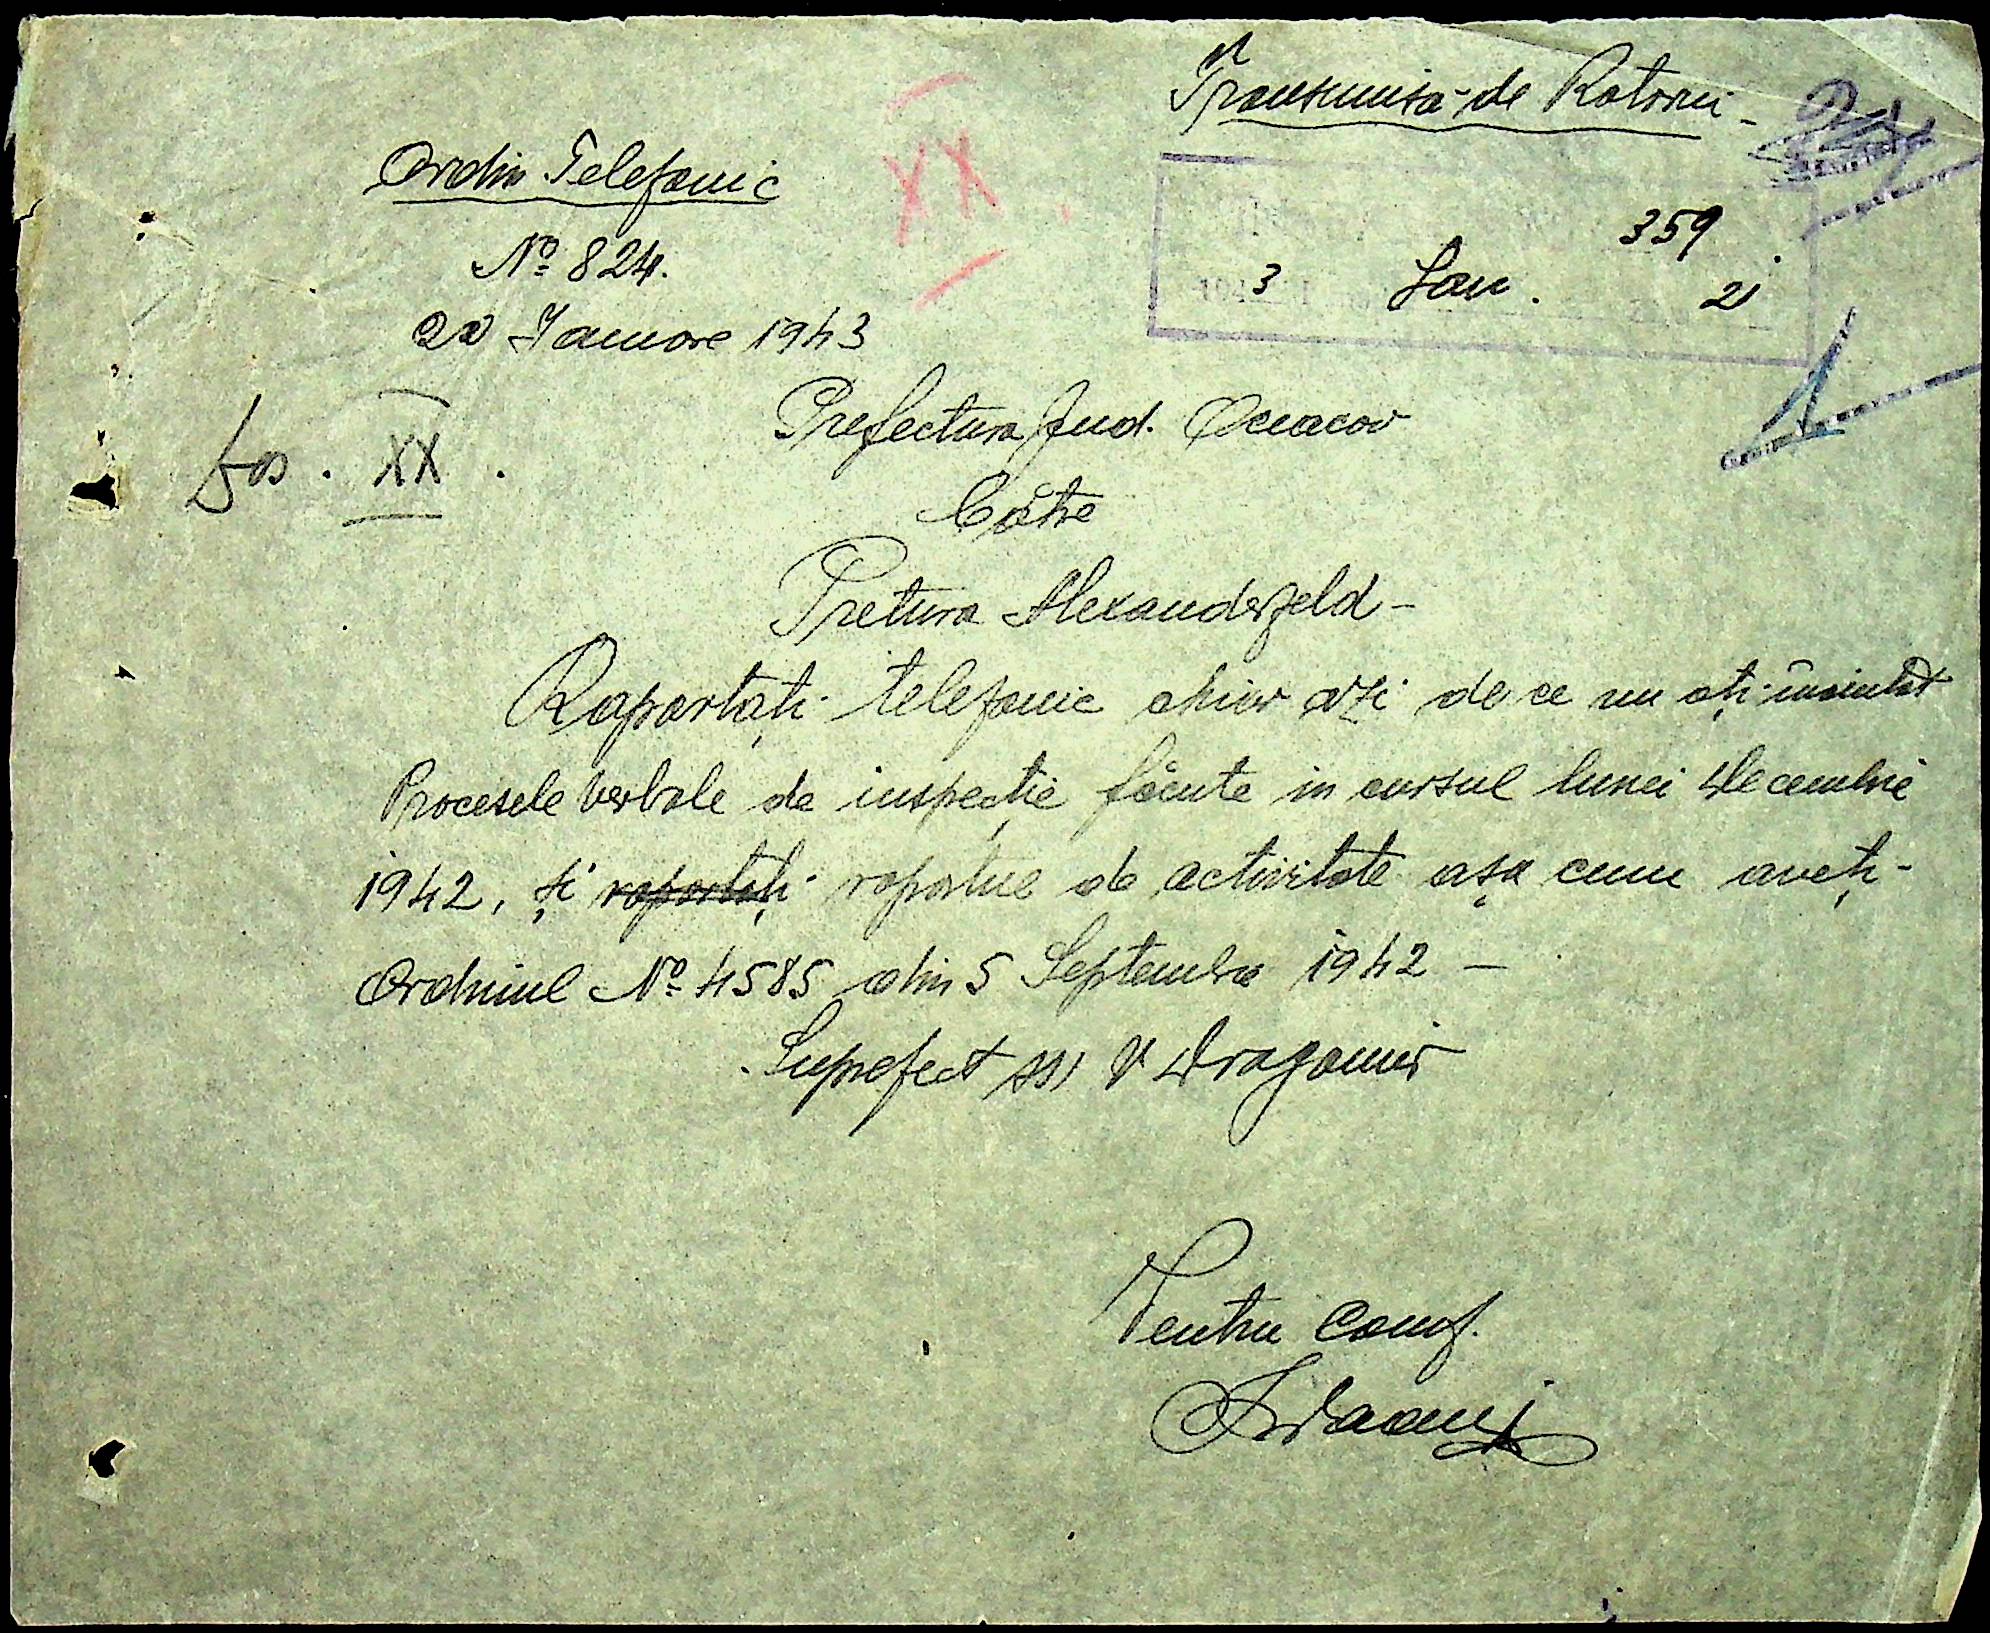 Transmisă de
Ordin Telefonic
XX
Nº 824.
359
3 Ian. 21
Ianuare 1943
Prefectura Jud. Oceacov
Dos. XX.
Către
Pretura Alexanderfeld -
Raportați telefonic chiar azi de ce nu ați înaintat
Procesele verbale de inspecție făcute in cursul lunei Decembrie
1942, și raportați raportul de activitate așa cum aveți-
Ordinul Nº 4585 din 5 Septembre 1942 -
Suprefect ss) V Dragomir
Pentru Conf.